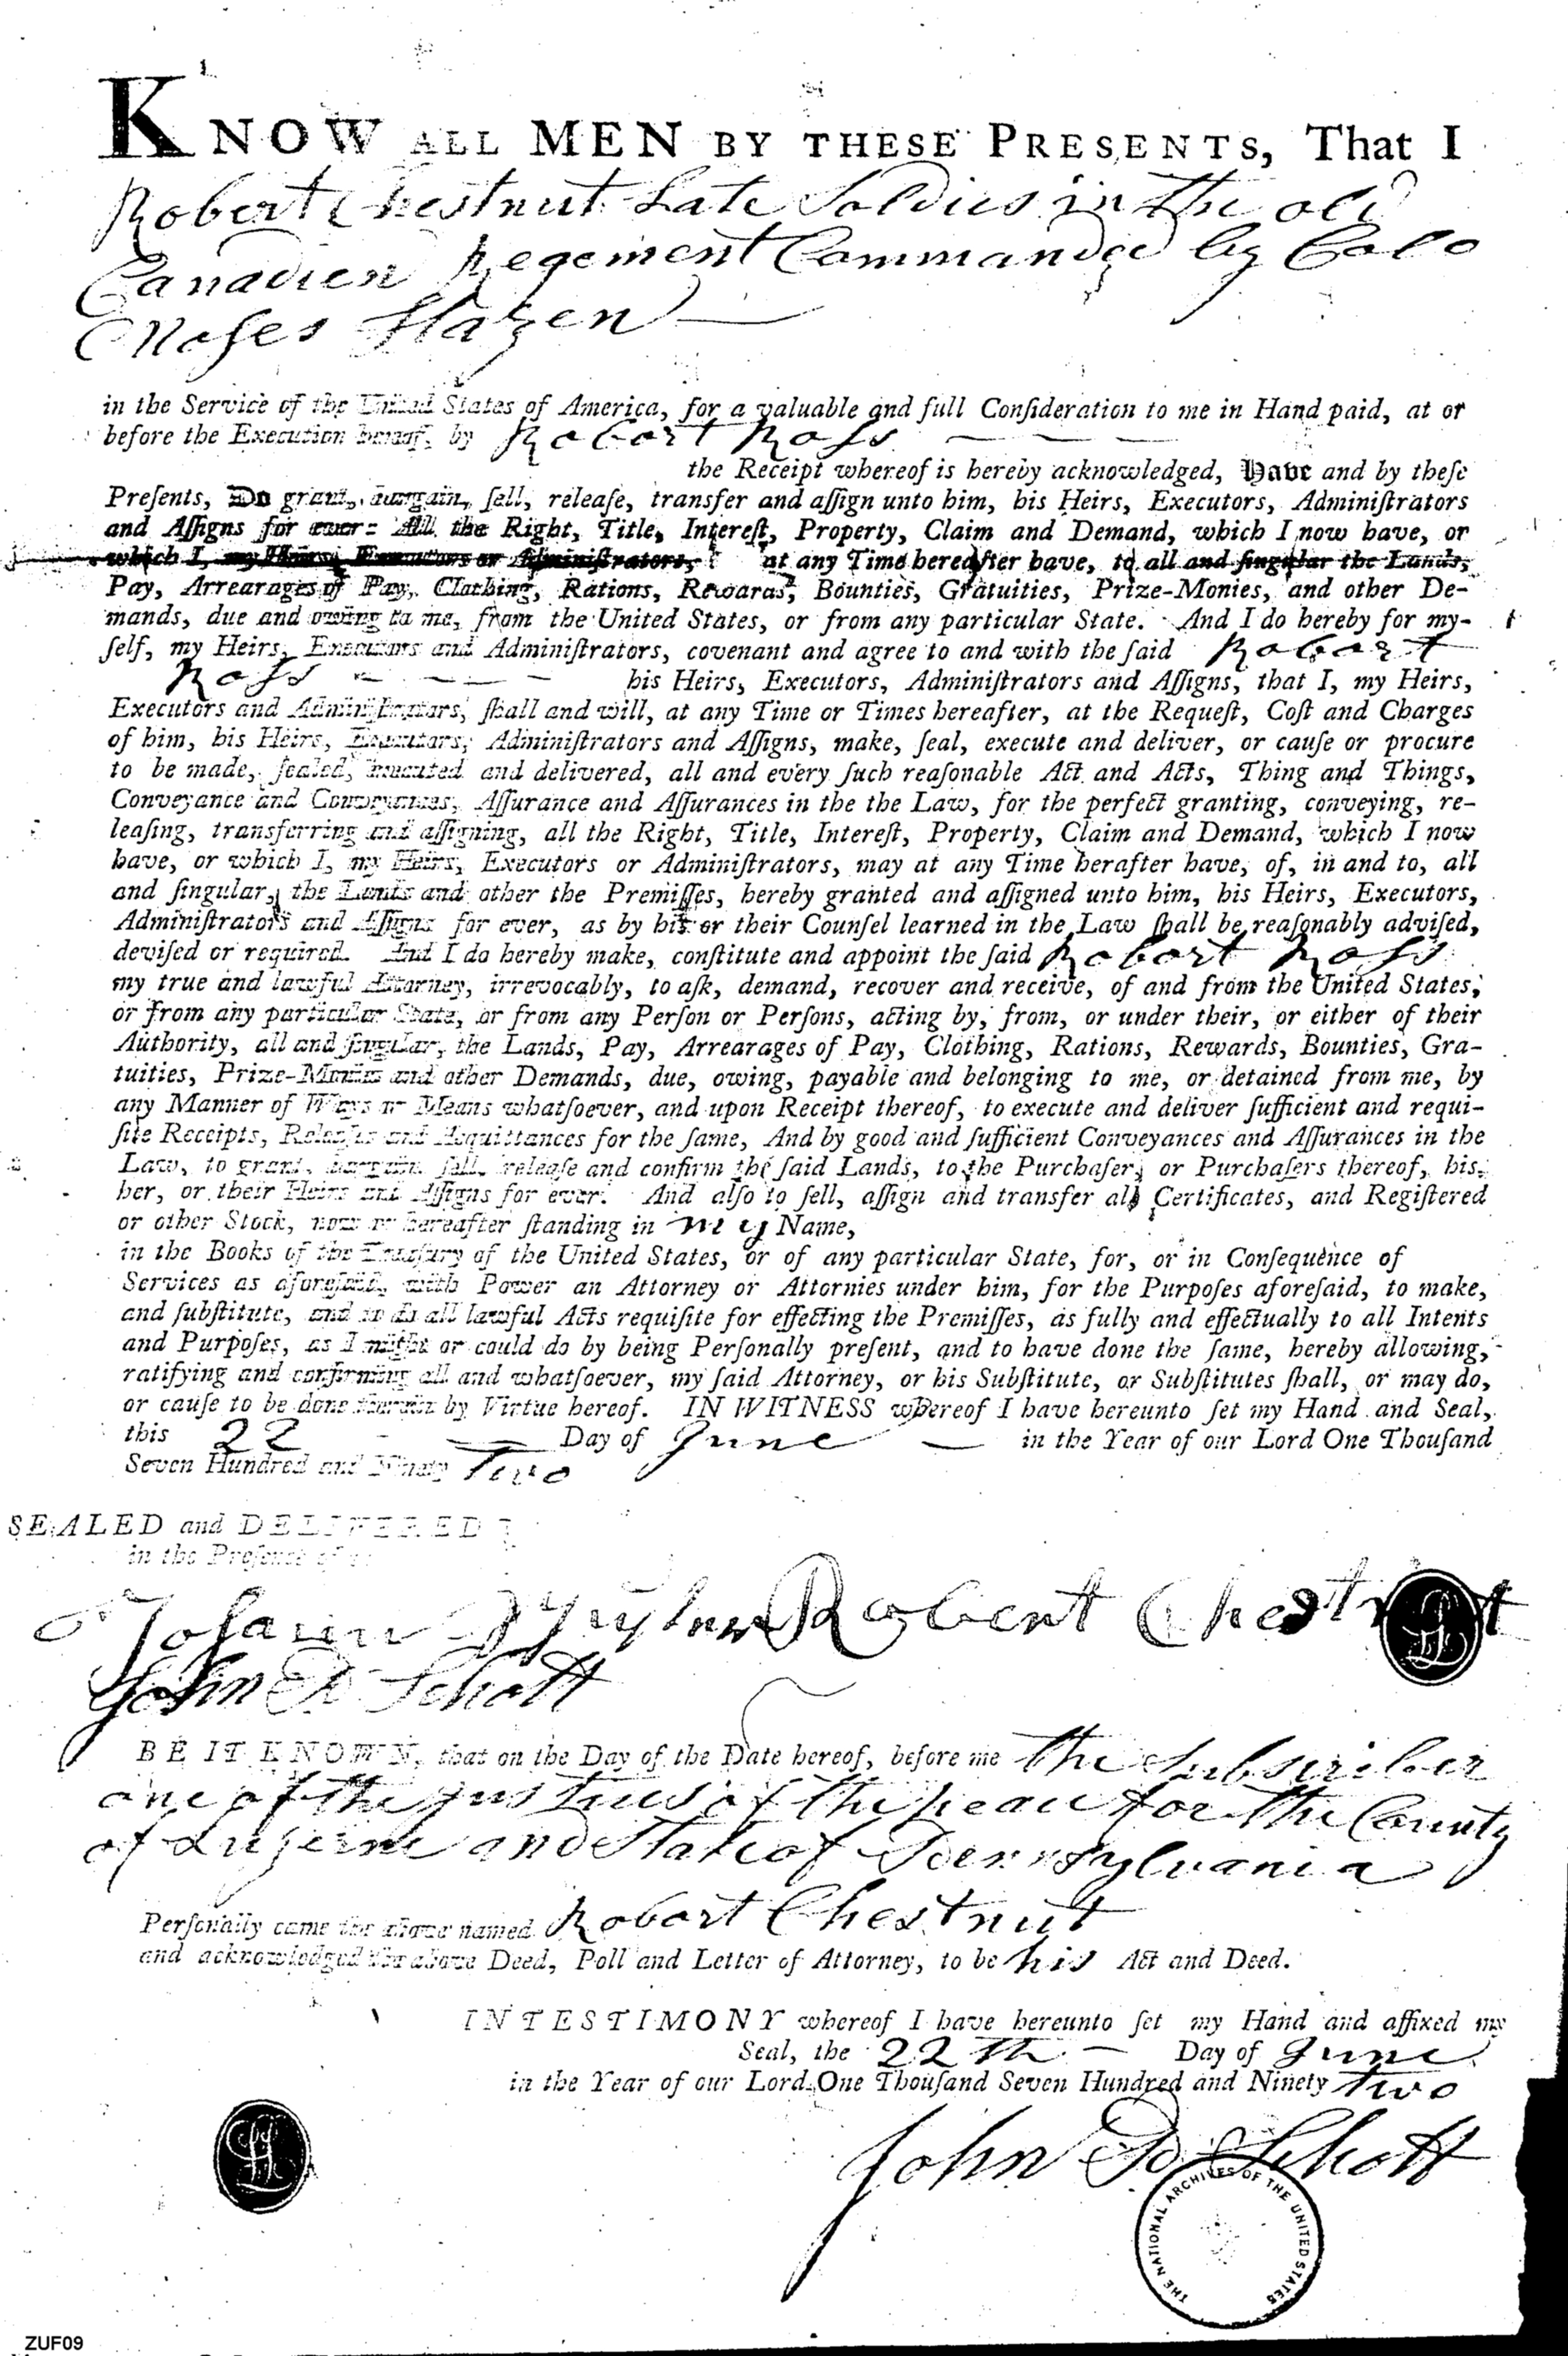 KNOW ALL MEN BY THESE PRESENTS, That I
Robert Chestnut Late Soldier in the old
Canadien Regement Commanded by Colo
Moses Hazen
in the Service of the United States of America, for a valuable and full Conſideration to me in Hand paid, at or
before the Execution hereof, by Robart Roſs
the Receipt whereof is hereby acknowledged, Have and by theſe
Preſents, Do grant, bargain, ſell, releaſe, transfer and aſſign unto him, his Heirs, Executors, Adminiſtrators
and Aſſigns for ever: All the Right, Title, Intereſt, Property, Claim and Demand, which I now have, or
which I, my Heirs, Executors or Adminiſtrators, at any Time hereafter have, to all and ſingular the Lands,
Pay, Arrearages of Pay, Clothing, Rations, Rewards, Bounties, Gratuities, Prize-Monies, and other De-
mands, due and owing to me, from the United States, or from any particular State. And I do hereby for my-
ſelf, my Heirs, Executors and Adminiſtrators, covenant and agree to and with the ſaid Robart
Roſs his Heirs, Executors, Adminiſtrators and Aſſigns, that I, my Heirs,
Executors and Adminiſtrators, ſhall and will, at any Time or Times hereafter, at the Requeſt, Coſt and Charges
of him, his Heirs, Executors, Adminiſtrators and Aſſigns, make, ſeal, execute and deliver, or cauſe or procure
to be made, ſealed, executed and delivered, all and every ſuch reaſonable Act and Acts, Thing and Things,
Conveyance and Conveyances, Aſſurance and Aſſurances in the the Law, for the perfect granting, conveying, re-
leaſing, transferring and aſſigning, all the Right, Title, Intereſt, Property, Claim and Demand, which I now
have, or which I, my Heirs, Executors or Adminiſtrators, may at any Time herafter have, of, in and to, all
and ſingular, the Lands and other the Premiſſes, hereby granted and aſſigned unto him, his Heirs, Executors,
Adminiſtrators and Aſſigns for ever, as by his or their Counſel learned in the Law ſhall be reaſonably adviſed,
deviſed or required. And I do hereby make, conſtitute and appoint the ſaid Robart Roſs
my true and lawful Attorney, irrevocably, to aſk, demand, recover and receive, of and from the United States,
or from any particular State, or from any Perſon or Perſons, acting by, from, or under their, or either of their
Authority, all and ſingular, the Lands, Pay, Arrearages of Pay, Clothing, Rations, Rewards, Bounties, Gra-
tuities, Prize-Monies and other Demands, due, owing, payable and belonging to me, or detained from me, by
any Manner of Ways or Means whatſoever, and upon Receipt thereof, to execute and deliver ſufficient and requi-
ſite Receipts, Releaſes and Acquittances for the ſame, And by good and ſufficient Conveyances and Aſſurances in the
Law, to grant, bargain ſell, releaſe and confirm the ſaid Lands, to the Purchaſer, or Purchaſers thereof, his,
her, or their Heirs and Aſſigns for ever. And alſo to ſell, aſſign and transfer all Certificates, and Regiſtered
or other Stock, now or hereafter ſtanding in my Name,
in the Books of the Treaſury of the United States, or of any particular State, for, or in Conſequence of
Services as aforeſaid, with Power an Attorney or Attornies under him, for the Purpoſes aforeſaid, to make,
and ſubſtitute, and to do all lawful Acts requiſite for effecting the Premiſſes, as fully and effectually to all Intents
and Purpoſes, as I might or could do by being Perſonally preſent, and to have done the ſame, hereby allowing,
ratifying and confirming all and whatſoever, my ſaid Attorney, or his Subſtitute, or Subſtitutes ſhall, or may do,
or cauſe to be done therein by Virtue hereof. IN WITNESS whereof I have hereunto ſet my Hand and Seal,
this 22 Day of June in the Year of our Lord One Thouſand
Seven Hundred and Ninety Two
SEALED and DELIVERED
in the Preſence of
Robert Chestnut
John P Schott
BE IT KNOWN, that on the Day of the Date hereof, before me the Subscriber
one of the Justices of the peace for the County
of Luzerne and State of Pennsylvania
Perſonally came the above named Robart Chestnut
and acknowledged the above Deed, Poll and Letter of Attorney, to be his Act and Deed.
IN TESTIMONY whereof I have hereunto ſet my Hand and affixed my
Seal, the 22th Day of June
in the Year of our Lord One Thouſand Seven Hundred and Ninety two
John P Schott
THE NATIONAL ARCHIVES OF THE UNITED STATES
ZUF09